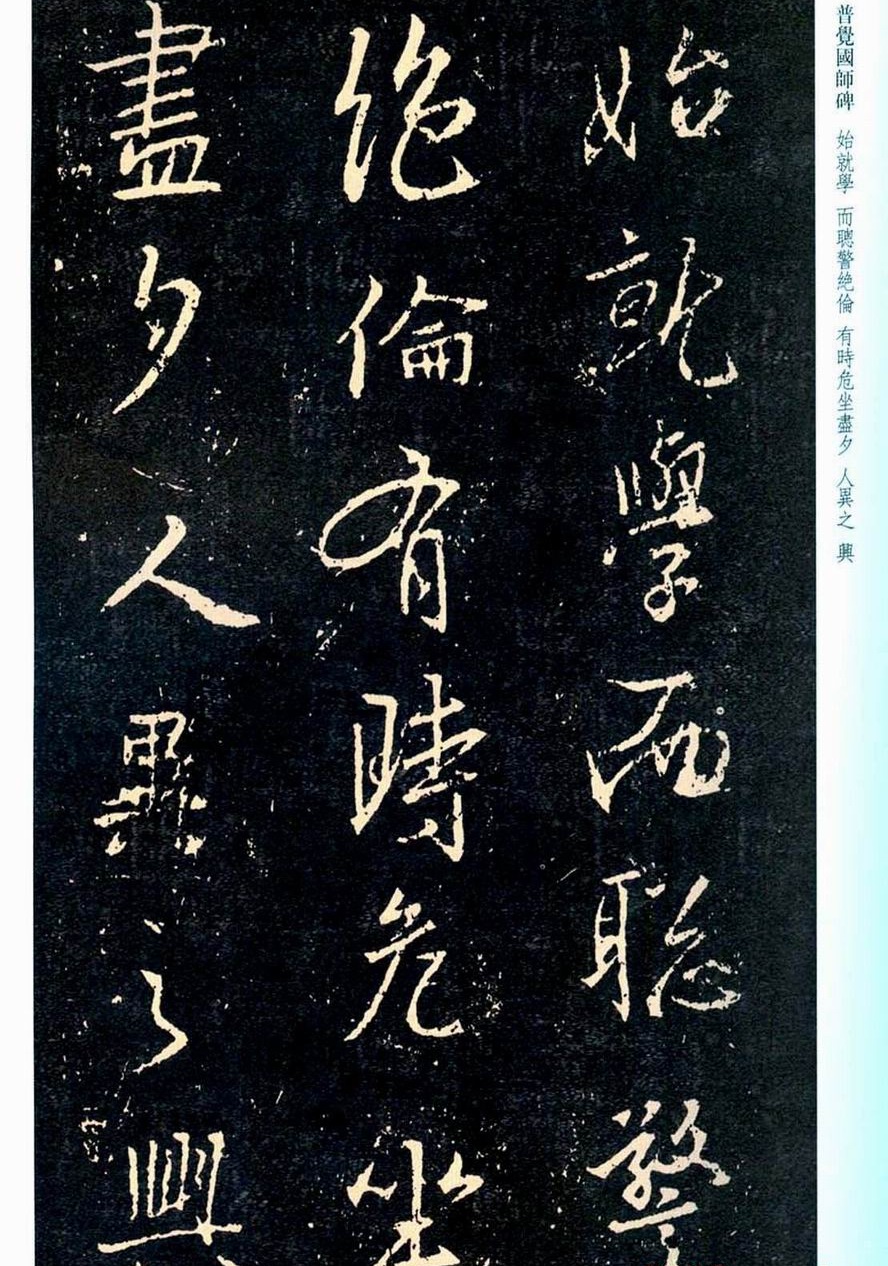 普覺國師碑 始就學 而聰警絶倫 有時危坐盡夕 人異之 興
始就學而聡警
絶倫有時危坐
盡夕人異之興